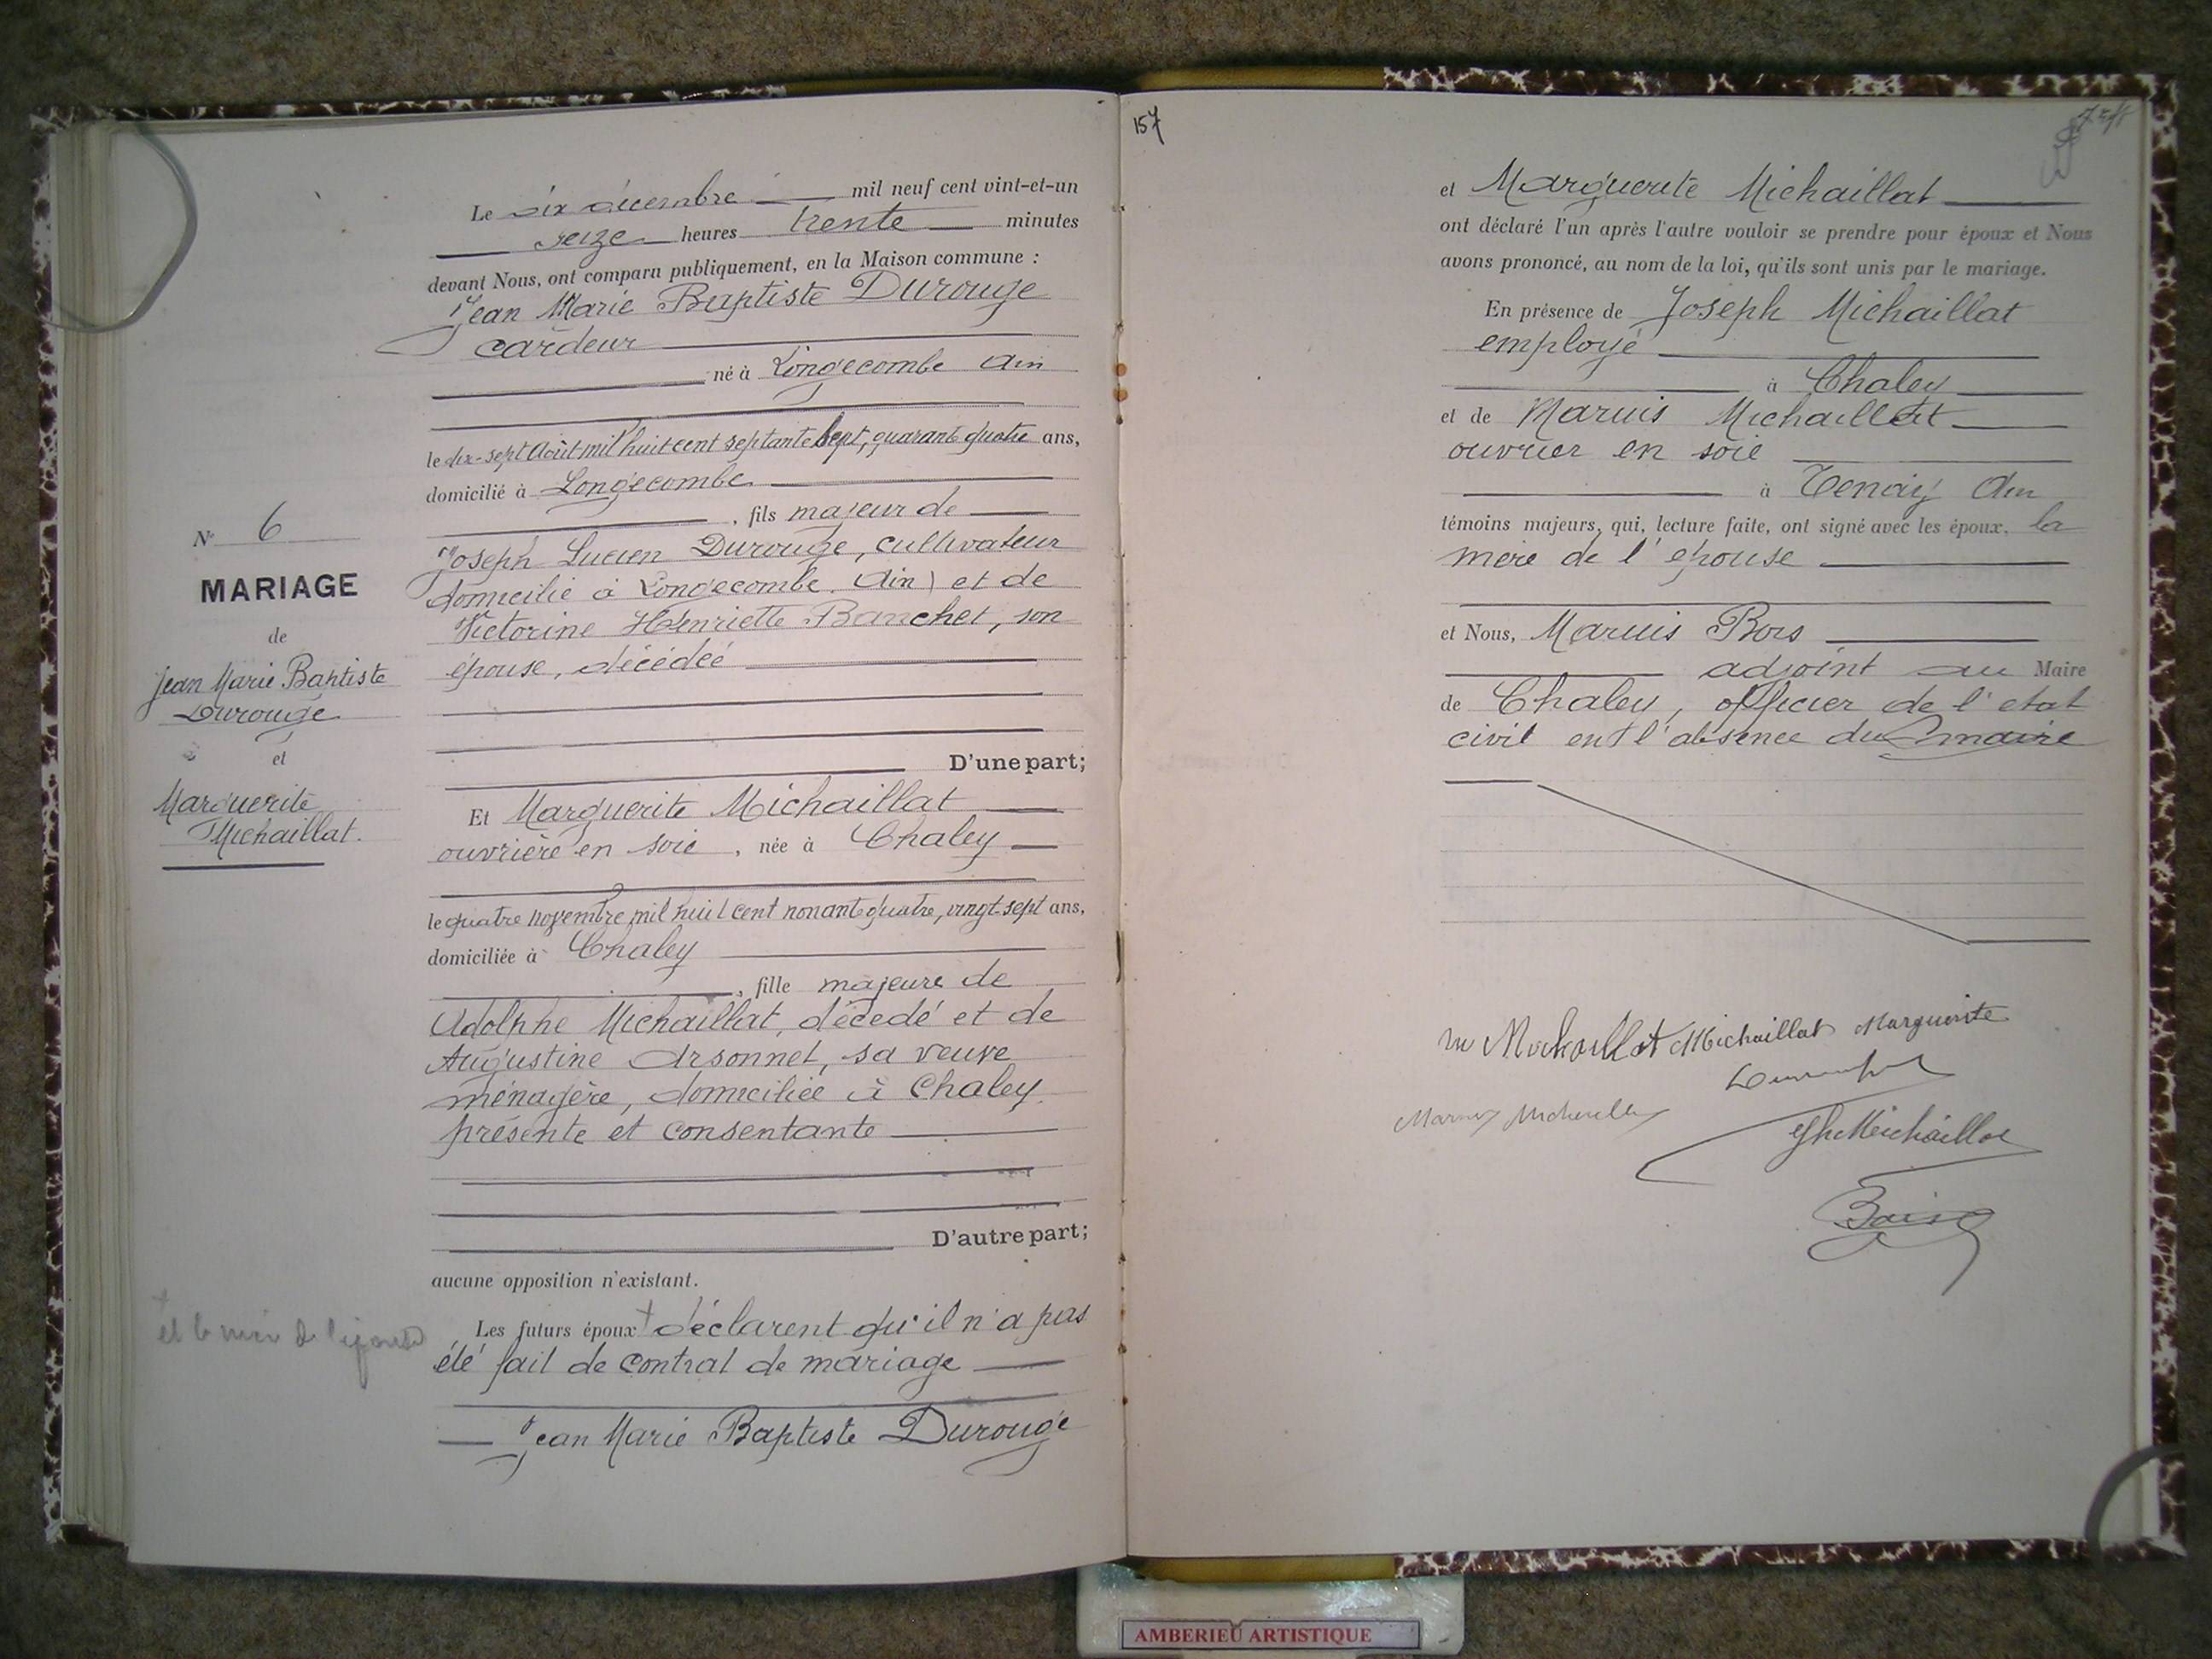 157
N° 6
MARIAGE
de
Jean Marie Baptiste
Durouge
et
Marguerite
Michaillat.
Le six décembre mil neuf cent vint-et-un
seize heures trente minutes
devant Nous, ont comparu publiquement, en la Maison commune :
Jean Marie Baptiste Durouge
cardeur
né à Longecombe Ain
le dix-sept Août mil huit cent septante sept, quarante quatre ans,
domicilié à Longecombe
, fils majeur de
Joseph Lucien Durouge, cultivateur
domicilié à Longecombe. Ain) et de
Victorine Henriette Banchet, son
épouse, décédée
D'une part;
Et Marguerite Michaillat
ouvrière en soie , née à Chaley
le quatre novembre mil huit cent nonante quatre, vingt-sept ans,
domiciliée à Chaley
, fille majeure de
Adolphe Michaillat, décedé et de
Augustine Arsonnet, sa veuve
ménagère, domiciliée à Chaley.
présente et consentante
D'autre part;
aucune opposition n'existant.
+
et la mère de l'épouse
Les futurs époux + déclarent qu'il n'a pas
été fait de contrat de mariage
Jean Marie Baptiste Durouge
et Marguerite Michaillat
ont déclaré l'un après l'autre vouloir se prendre pour époux et Nous
avons prononcé, au nom de la loi, qu'ils sont unis par le mariage.
En présence de Joseph Michaillat
employé
à Chaley
et de Maruis Michaillat
ouvrier en soie
à Tenay Ain
témoins majeurs, qui, lecture faite, ont signé avec les époux. la
mère de l'épouse
et Nous, Maruis Bors
adjoint au Maire
de Chaley, officier de l'etat
civil en l'absence du maire
Michaillat Michaillat Marguerite
Durouge
Michaillat
AMBERIEU ARTISTIQUE